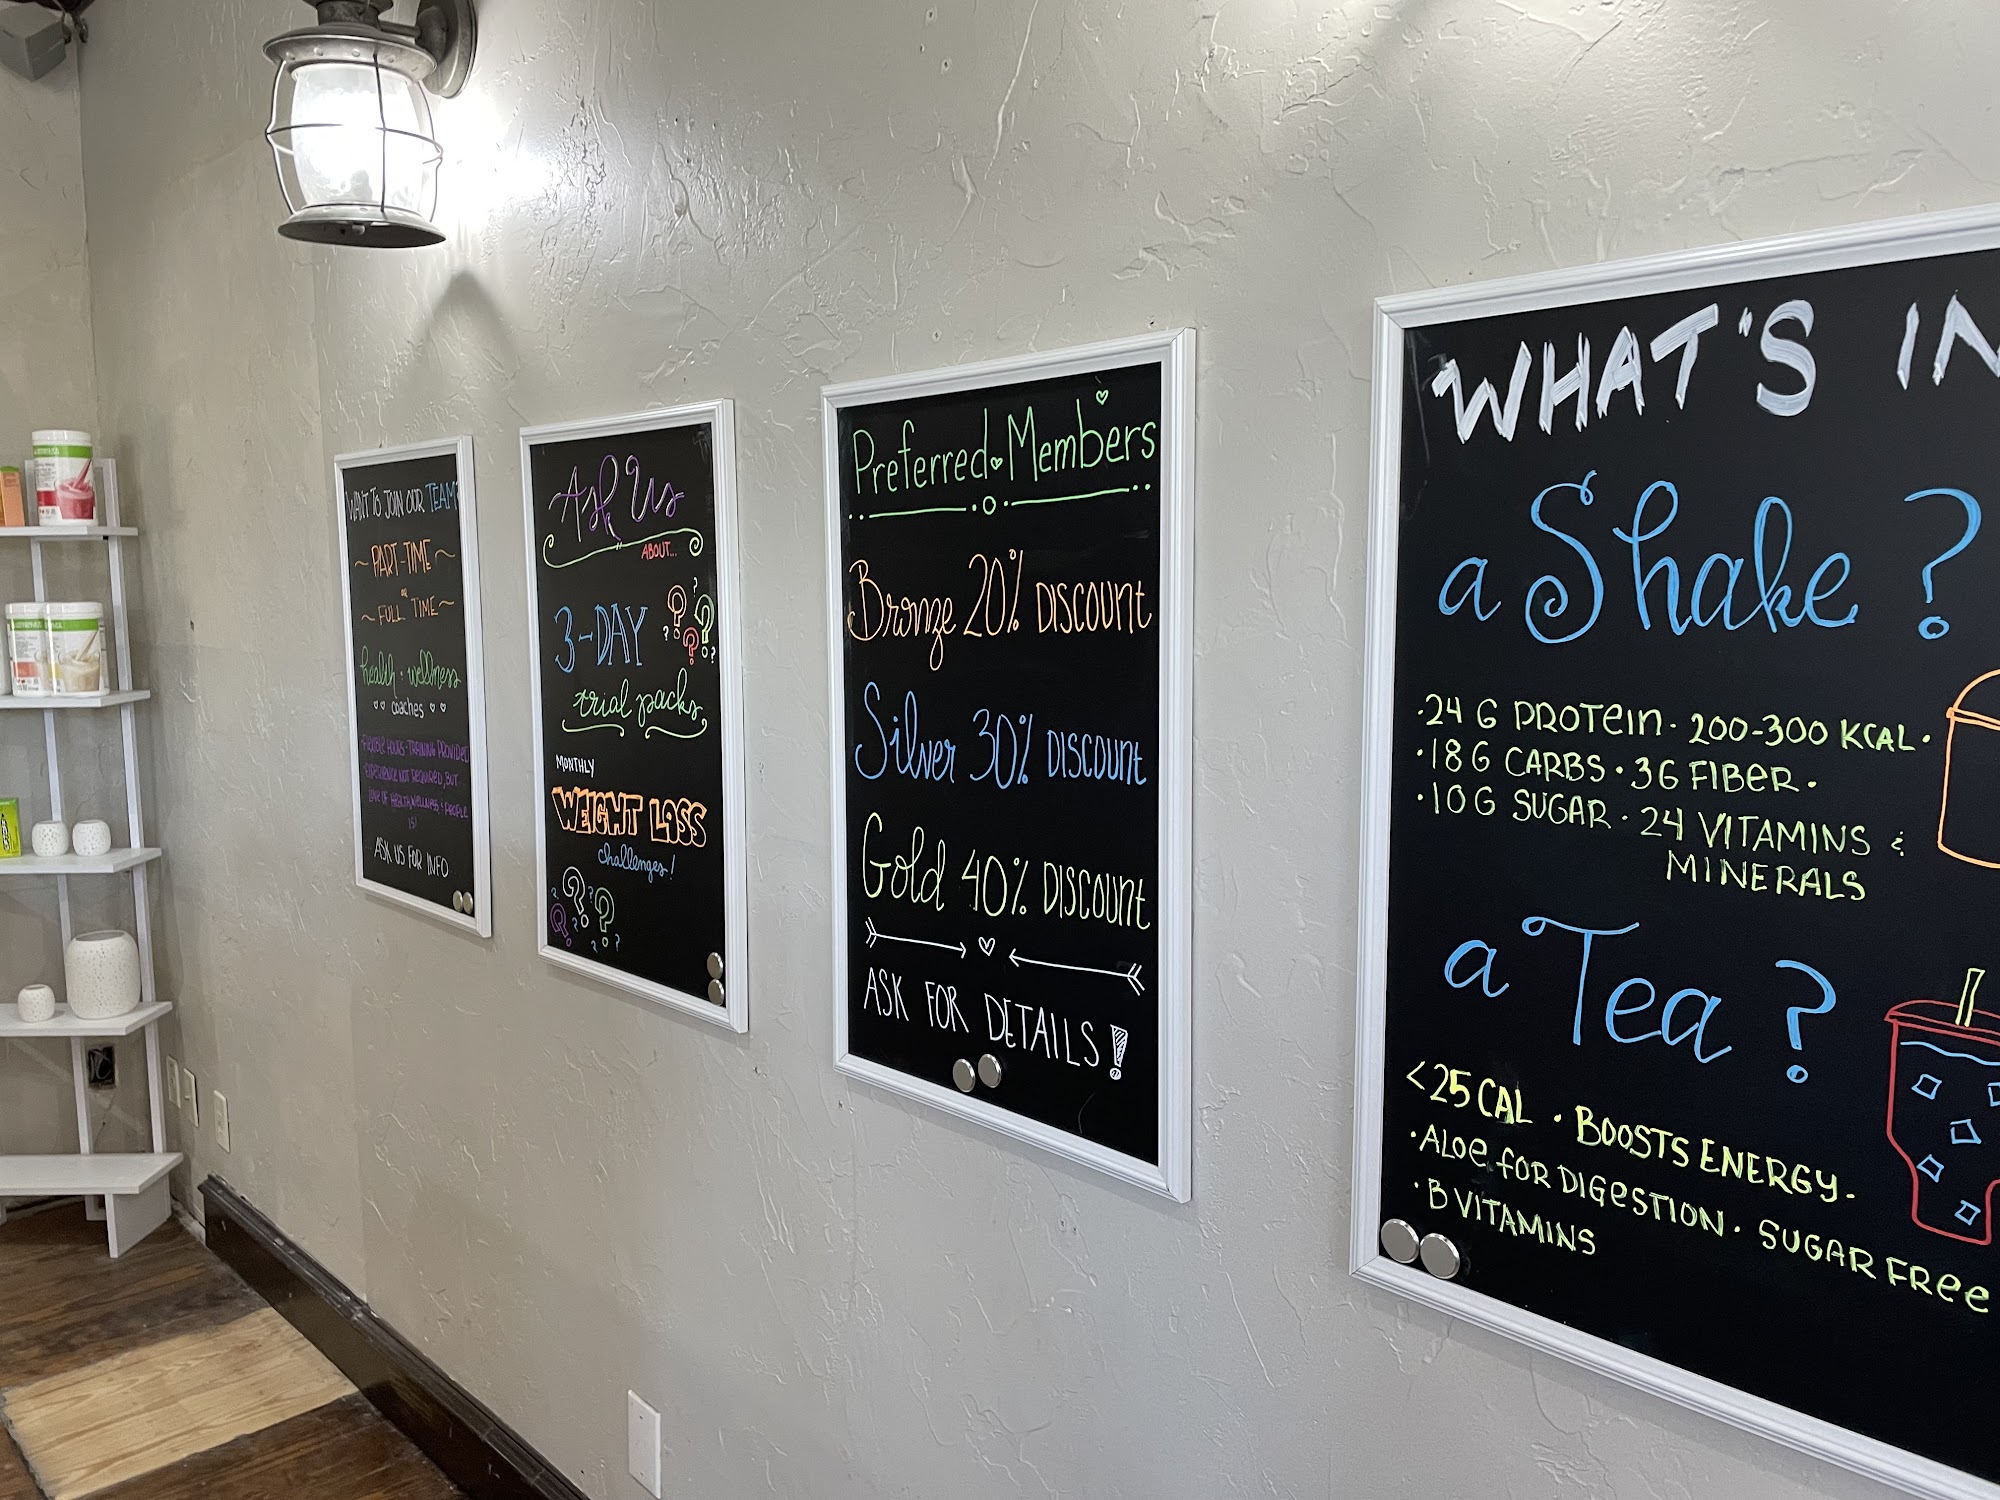 WANT TO JOIN OUR TEAM?
~ PART-TIME ~
OR
~ FULL TIME ~
health + wellness
coaches
FLEXIBLE HOURS · TRAINING PROVIDED
EXPERIENCE NOT REQUIRED, BUT
LOVE OF HEALTH, WELLNESS & PEOPLE
IS!
ASK US FOR INFO
Ask Us
ABOUT...
3-DAY
trial packs
MONTHLY
WEIGHT LOSS
challenges!
Preferred Members
Bronze 20% DISCOUNT
Silver 30% DISCOUNT
Gold 40% DISCOUNT
ASK FOR DETAILS!
WHAT'S IN
a Shake?
·24 G PROTEIN · 200-300 KCAL ·
·18 G CARBS · 3G FIBER ·
·10 G SUGAR · 24 VITAMINS &
MINERALS
a Tea?
<25 CAL · BOOSTS ENERGY ·
·ALOE FOR DIGESTION · SUGAR FREE
·B VITAMINS